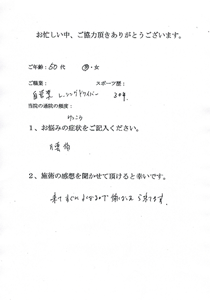 お忙しい中、ご協力頂きありがとうございます。
ご年齢：50代 男・女
ご職業： スポーツ歴：
自営業 レーシングドライバー 30年
当院の通院の頻度：
1、お悩みの症状をご記入ください。
腰痛
2、施術の感想を聞かせて頂けると幸いです。
来て すぐに よくなるので 助かって ます。